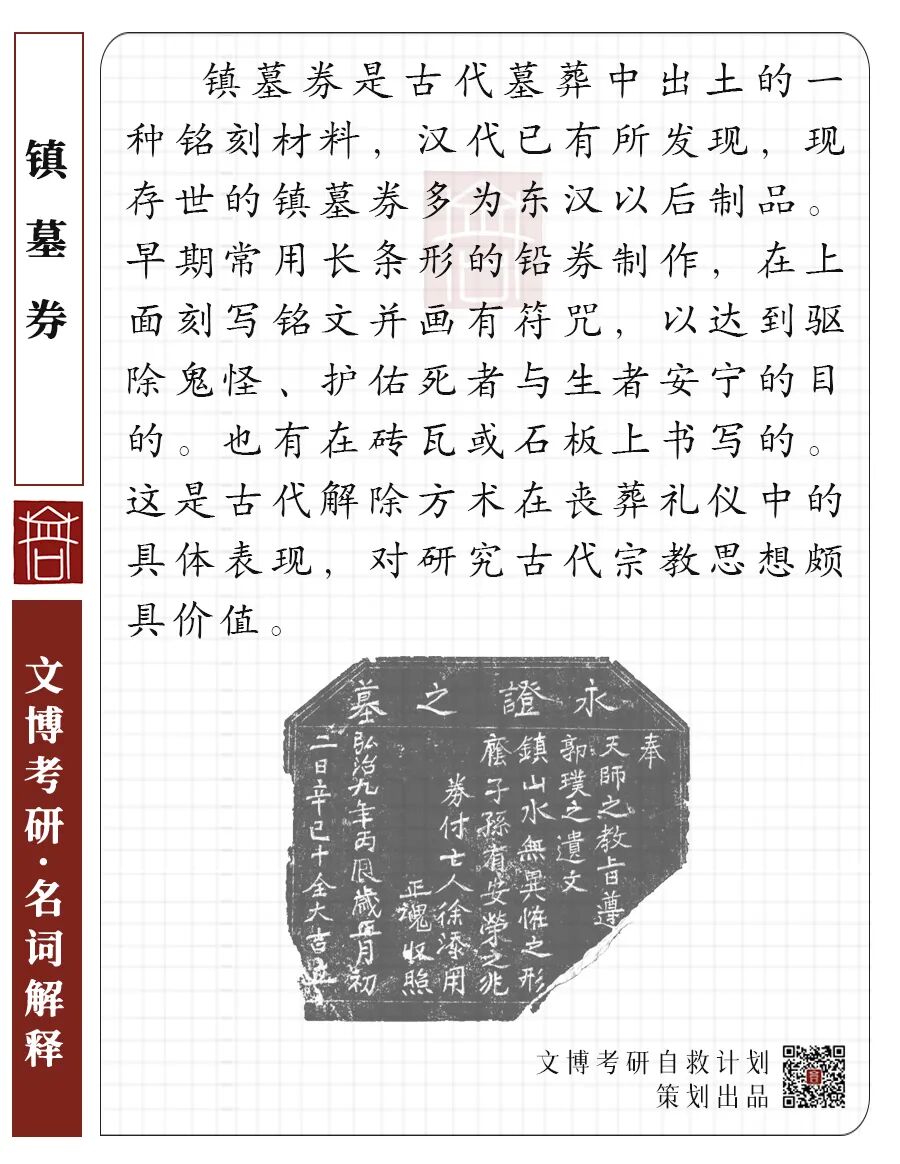 镇墓券
文博考研·名词解释
镇墓券是古代墓葬中出土的一
种铭刻材料，汉代已有所发现，现
存世的镇墓券多为东汉以后制品。
早期常用长条形的铅券制作，在上
面刻写铭文并画有符咒，以达到驱
除鬼怪、护佑死者与生者安宁的目
的。也有在砖瓦或石板上书写的。
这是古代解除方术在丧葬礼仪中的
具体表现，对研究古代宗教思想颇
具价值。
永證之墓
奉
天師之教旨遵
郭璞之遺文
鎮山水無異怪之形
廕子孫有安榮之兆
券付亡人徐添用
正魂收照
弘治九年丙辰歲正月初
二日辛巳十全大吉
文博考研自救计划
策划出品